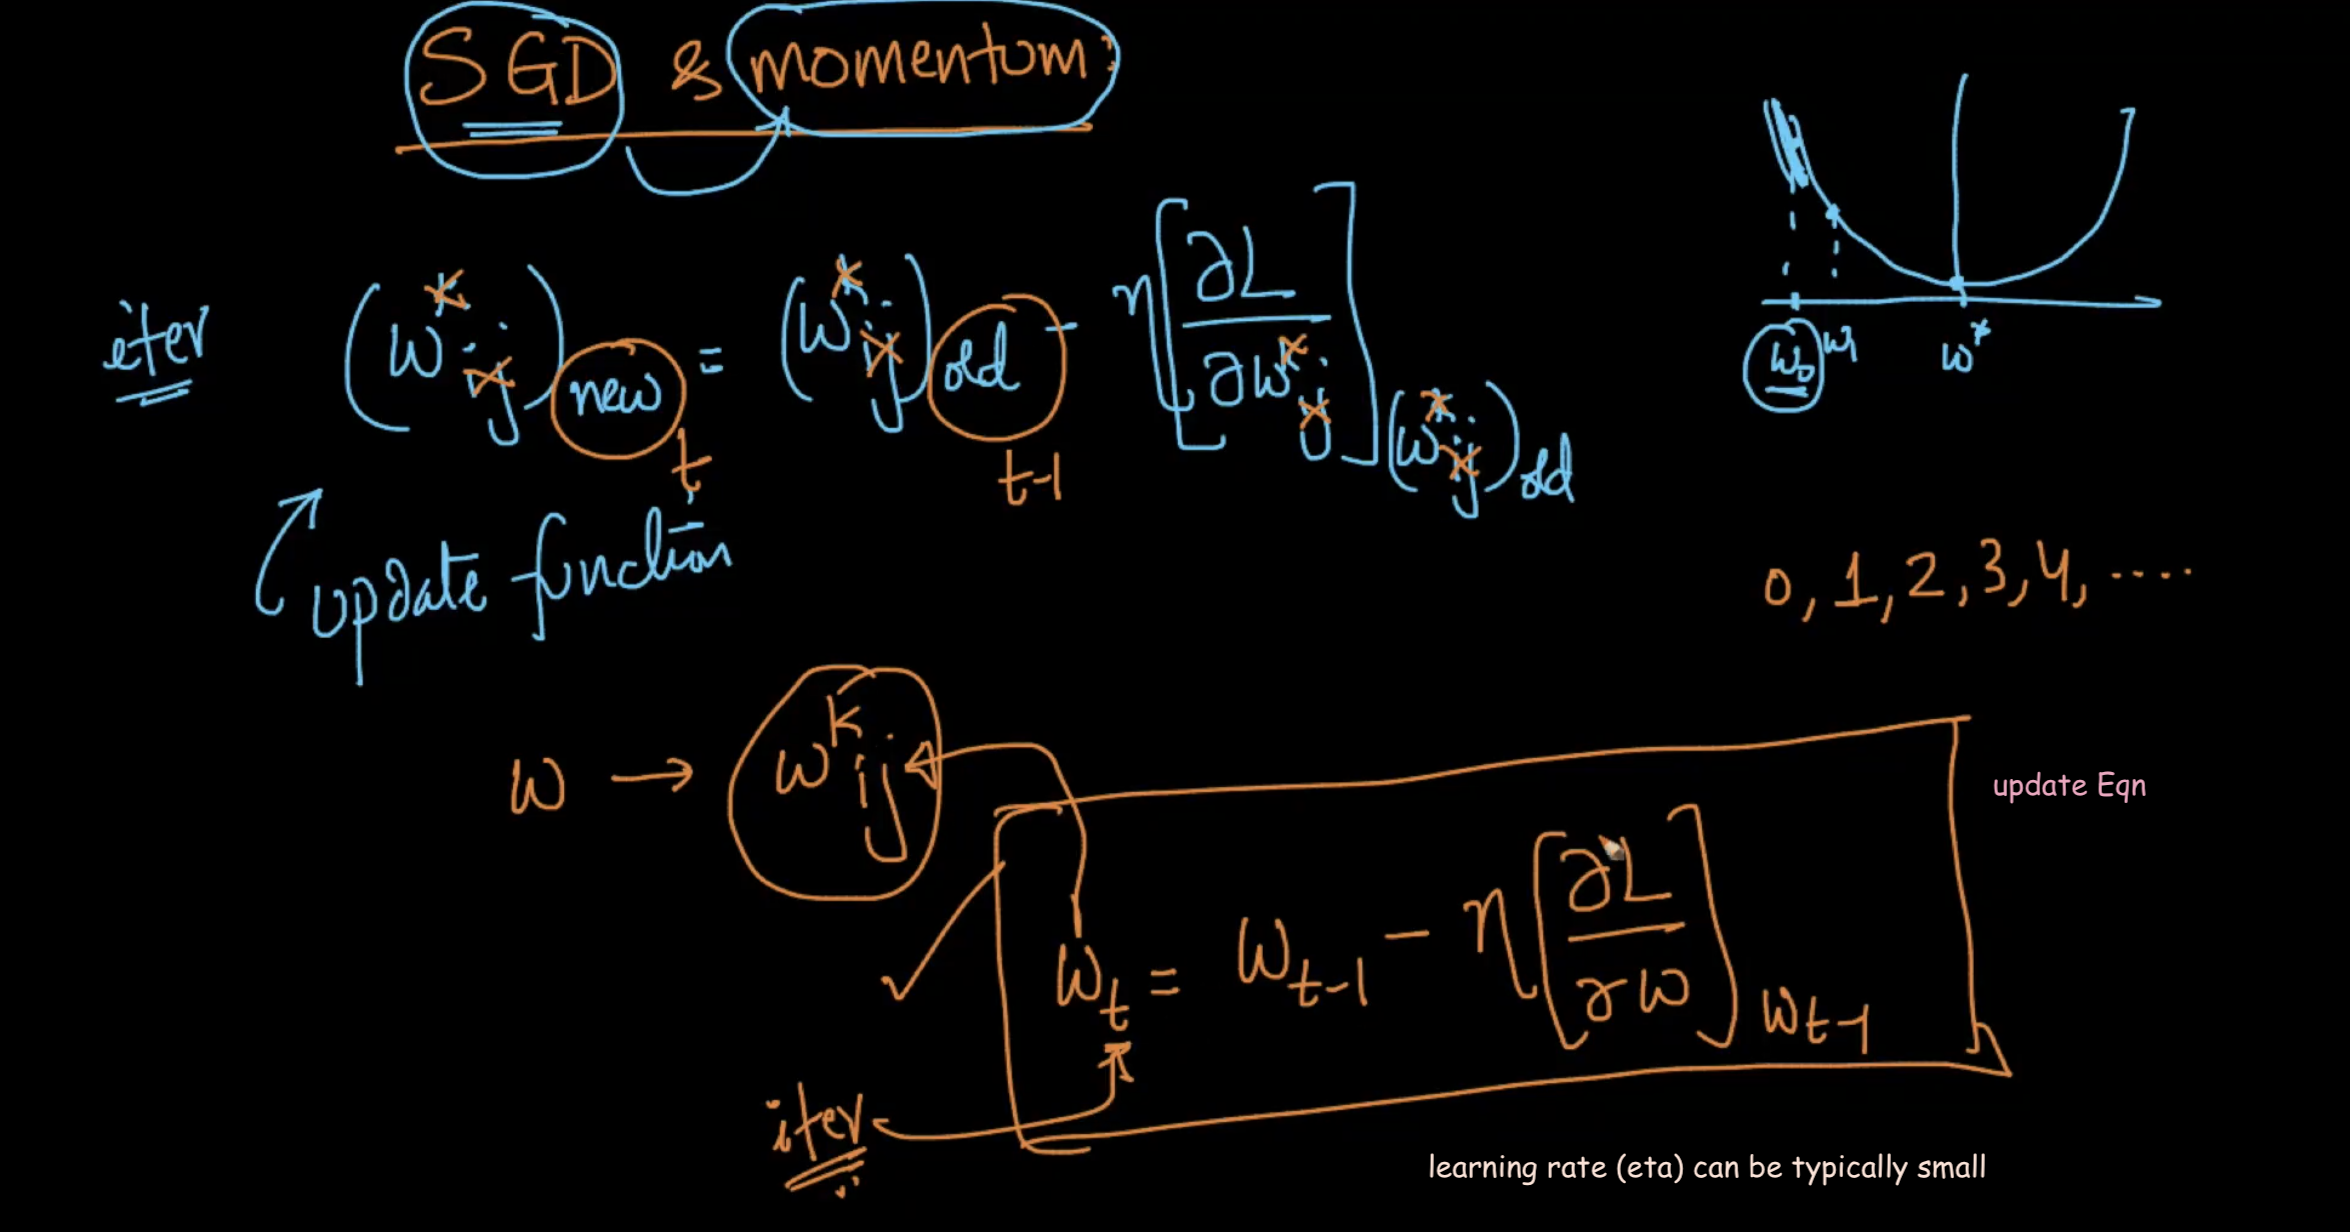 SGD & momentum:
iter (w^k_ij)new = (w^k_ij)old - η[∂L/∂w^k_ij](w^k_ij)old
t t-1
w₀ w₁ w*
update function
0, 1, 2, 3, 4, ....
w → w^k_ij
update Eqn
w_t = w_t-1 - η[∂L/∂w]w_t-1
iter
learning rate (eta) can be typically small